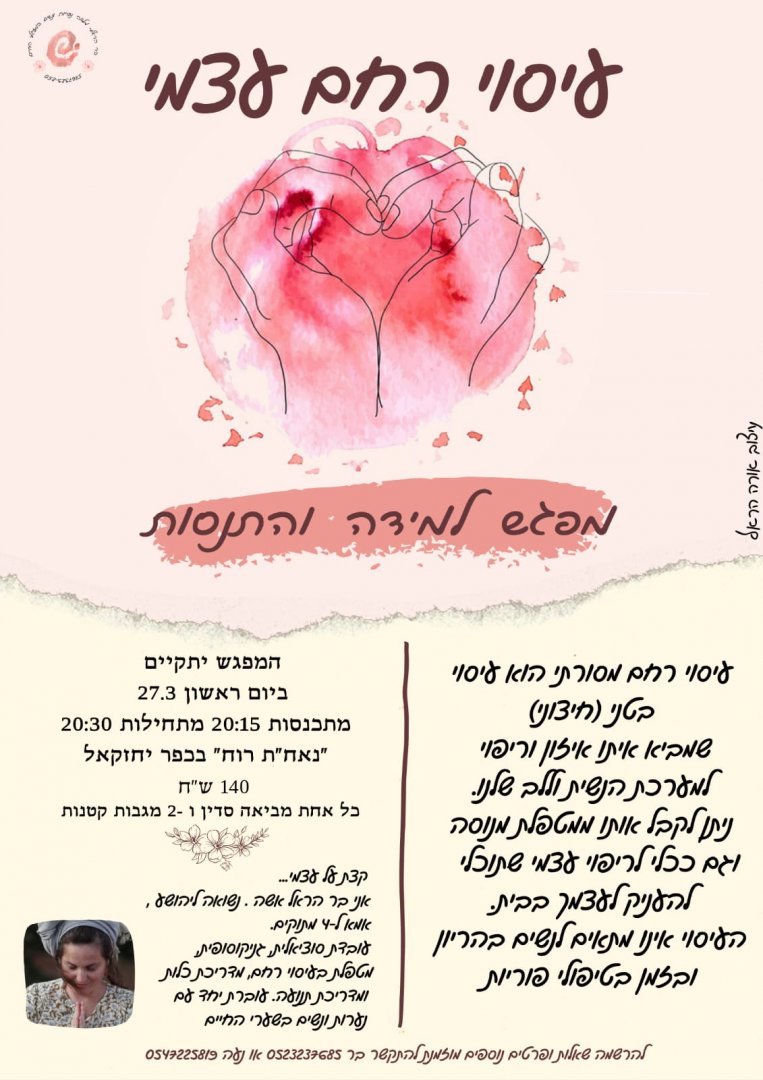 עיסוי רחם עצמי
מפגש למידה והתנסות
עיצוב אורה הראל
עיסוי רחם מסורתי הוא עיסוי
בטני (חיצוני)
שמביא איתו איזון וריפוי
למערכת הנשית וללב שלנו.
ניתן לקבל אותו ממטפלת מנוסה
וגם ככלי לריפוי עצמי שתוכלי
להעניק לעצמך בבית.
העיסוי אינו מתאים לנשים בהריון
ובזמן בטיפולי פוריות
המפגש יתקיים
ביום ראשון 27.3
מתכנסות 20:15 מתחילות 20:30
"נאח"ת רוח" בכפר יחזקאל
140 ש"ח
כל אחת מביאה סדין ו -2 מגבות קטנות
קצת על עצמי...
אני בר הראל אשה . נשואה ליהושע ,
אמא ל-4 מתוקים.
עובדת סוציאלית, גניקוסופית,
מטפלת בעיסוי רחם, מדריכת כלות
ומדריכת תנועה. עוברת יחד עם
נערות ונשים בשערי החיים
להרשמה שאלות ופרטים נוספים מוזמנת להתקשר בר 0523237685 או נעה 0547225819